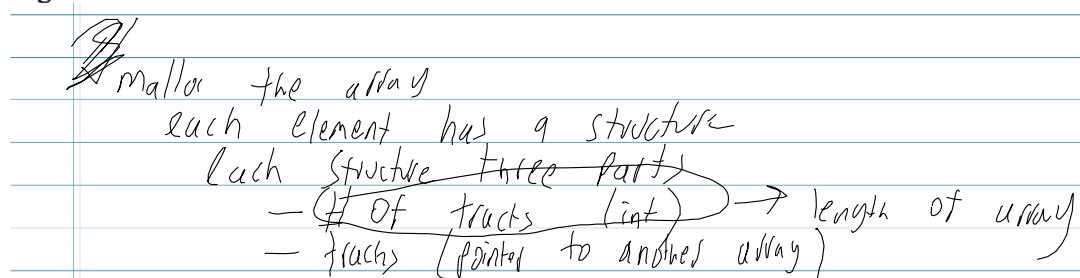 malloc the array
each element has a structure
Each structure three parts
- # of tracts (int) → length of array
- tracks (pointer to another array)